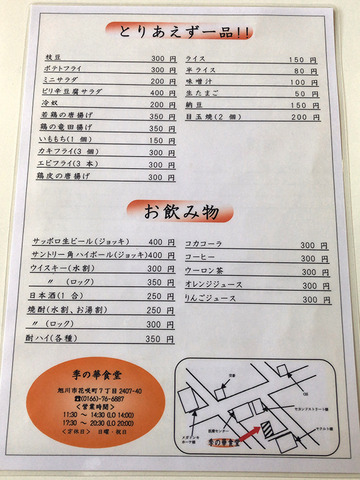 とりあえず一品!!
枝豆 300 円
ポテトフライ 300 円
ミニサラダ 200 円
ピリ辛豆腐サラダ 400 円
冷奴 200 円
若鶏の唐揚げ 350 円
鶏の竜田揚げ 350 円
いももち(1 個) 150 円
カキフライ(3 個) 300 円
エビフライ(3 本) 300 円
鶏皮の唐揚げ 300 円
ライス 150 円
半ライス 80 円
味噌汁 100 円
生たまご 50 円
納豆 150 円
目玉焼(2 個) 200 円
お飲み物
サッポロ生ビール(ジョッキ) 400 円
サントリー角ハイボール(ジョッキ) 400 円
ウイスキー(水割) 300 円
〃 (ロック) 350 円
日本酒(1 合) 250 円
焼酎(水割、お湯割) 250 円
〃 (ロック) 300 円
酎ハイ(各種) 350 円
コカコーラ 300 円
コーヒー 300 円
ウーロン茶 300 円
オレンジジュース 300 円
りんごジュース 300 円
季の華食堂
旭川市花咲町7丁目2407-40
☎(0166)-76-6887
<営業時間>
11:30 ～ 14:30 (LO 14:00)
17:30 ～ 20:30 (LO 20:00)
<定休日> 日曜・祝日
季の華食堂